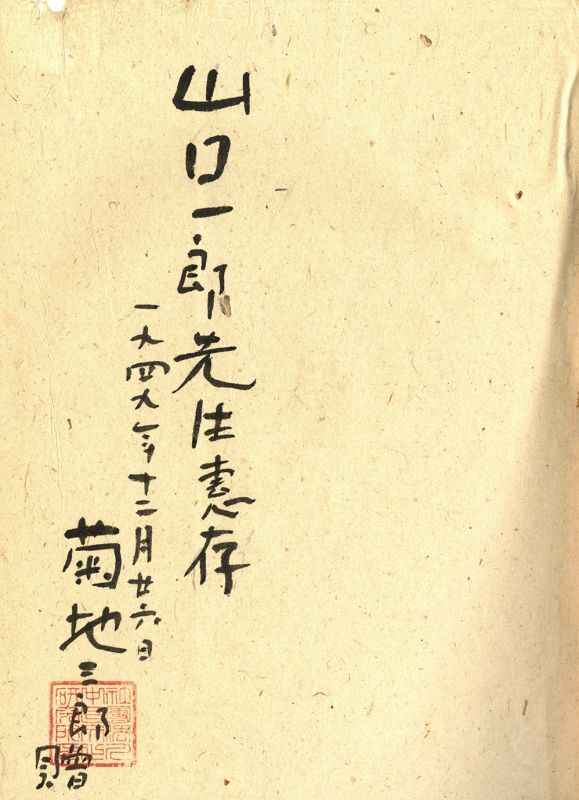 山口一郎先生惠存
一九四九年十二月廿六日
菊地三郎
贈